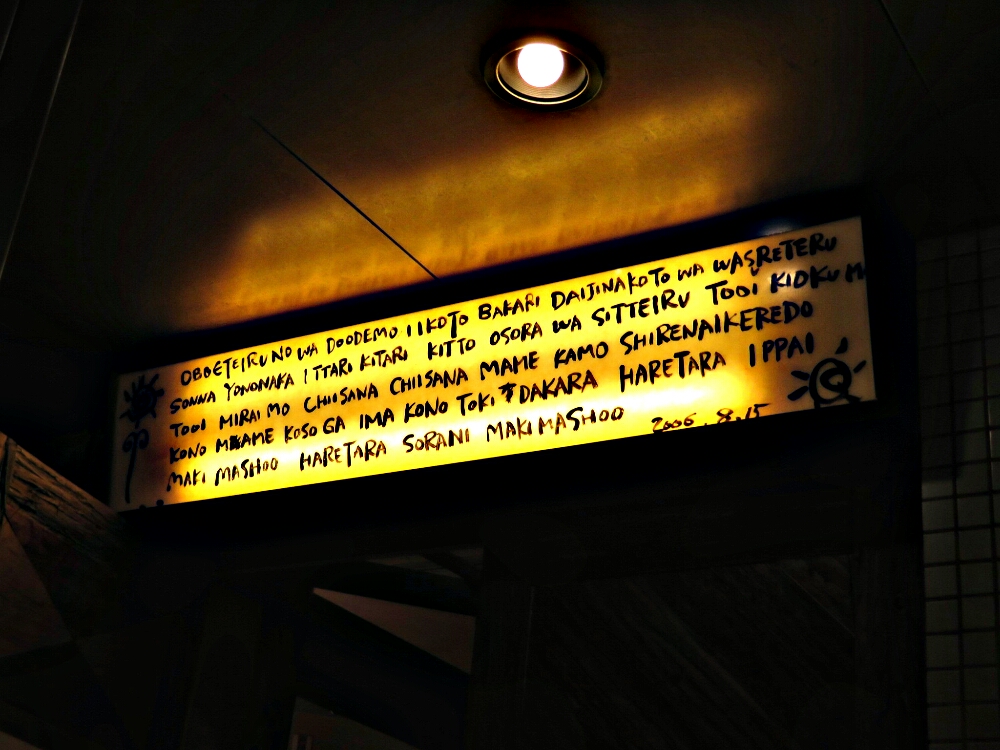 OBOETEIRU NO WA DOODEMO IIKOTO BAKARI DAIJINAKOTO WA WASRETERU
SONNA YONONAKA ITTARI KITARI KITTO OSORA WA SITTEIRU TOOI KIOKU MO
TOOI MIRAI MO CHIISANA CHIISANA MAME KAMO SHIRENAIKEREDO
KONO MAME KOSO GA IMA KONO TOKI DAKARA HARETARA IPPAI
MAKI MASHOO HARETARA SORANI MAKIMASHOO 2006.8.15